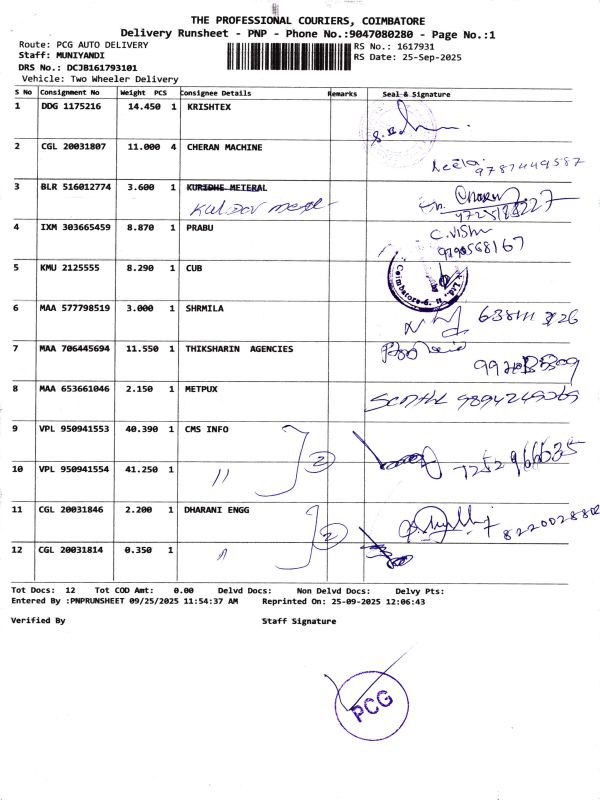 THE PROFESSIONAL COURIERS, COIMBATORE
Delivery Runsheet - PNP - Phone No.:9047080280 - Page No.:1
Route: PCG AUTO DELIVERY RS No.: 1617931
Staff: MUNIYANDI RS Date: 25-Sep-2025
DRS No.: DCJB161793101
Vehicle: Two Wheeler Delivery
S No Consignment No Weight PCS Consignee Details Remarks Seal & Signature
1 DDG 1175216 14.450 1 KRISHTEX
2 CGL 20031807 11.000 4 CHERAN MACHINE
Neela 9787449587
3 BLR 516012774 3.600 1 KURIDHE METERAL
4 IXM 303665459 8.870 1 PRABU
C. Vishu
5 KMU 2125555 8.290 1 CUB
Coimbatore-6.
6 MAA 577798519 3.000 1 SHRMILA
7 MAA 706445694 11.550 1 THIKSHARIN AGENCIES
8 MAA 653661046 2.150 1 METPUX
9 VPL 950941553 40.390 1 CMS INFO
2
7252966635
10 VPL 950941554 41.250 1 "
11 CGL 20031846 2.200 1 DHARANI ENGG
2
8220028802
12 CGL 20031814 0.350 1 "
Tot Docs: 12 Tot COD Amt: 0.00 Delvd Docs: Non Delvd Docs: Delvy Pts:
Entered By :PNPRUNSHEET 09/25/2025 11:54:37 AM Reprinted On: 25-09-2025 12:06:43
Verified By Staff Signature
PCG